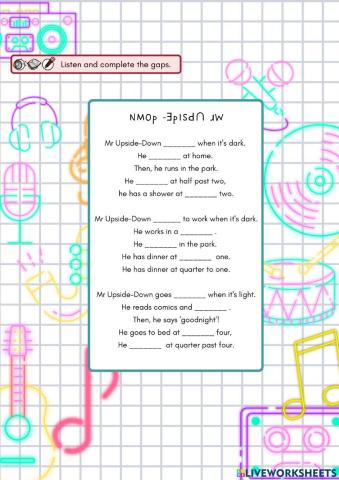 Listen and complete the gaps.
Mr Upside-Down
Mr Upside-Down _______ when it's dark.
He _______ at home.
Then, he runs in the park.
He _______ at half past two,
he has a shower at _______ two.
Mr Upside-Down ______ to work when it's dark.
He works in a _______ .
He _______ in the park.
He has dinner at _______ one.
He has dinner at quarter to one.
Mr Upside-Down goes _______ when it's light.
He reads comics and _______ .
Then, he says 'goodnight'!
He goes to bed at _______ four,
He _______ at quorter past four.
LIVEWORKSHEETS